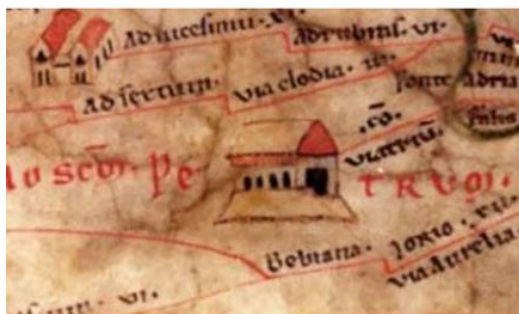 Ad uicesimu. xi. ad rubras. vi. vi
Ad sextum. via clodia. iii. fonte adria
.cō.
ad scm. Pe TRVM.
Bebiana. Lorio. xii.
via Aurelia
vi.